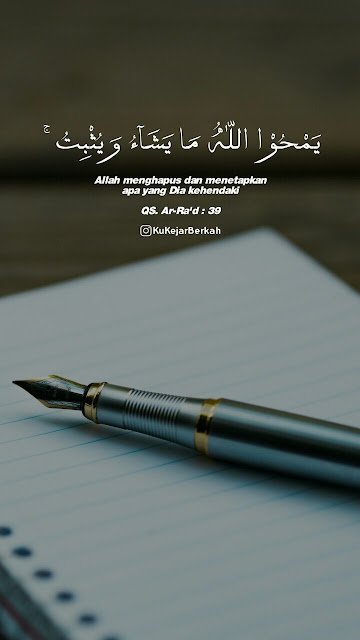 يَمْحُوْا اللّٰهُ مَا يَشَاۤءُ وَيُثْبِتُ ۚ
Allah menghapus dan menetapkan
apa yang Dia kehendaki
QS. Ar-Ra'd : 39
KuKejarBerkah